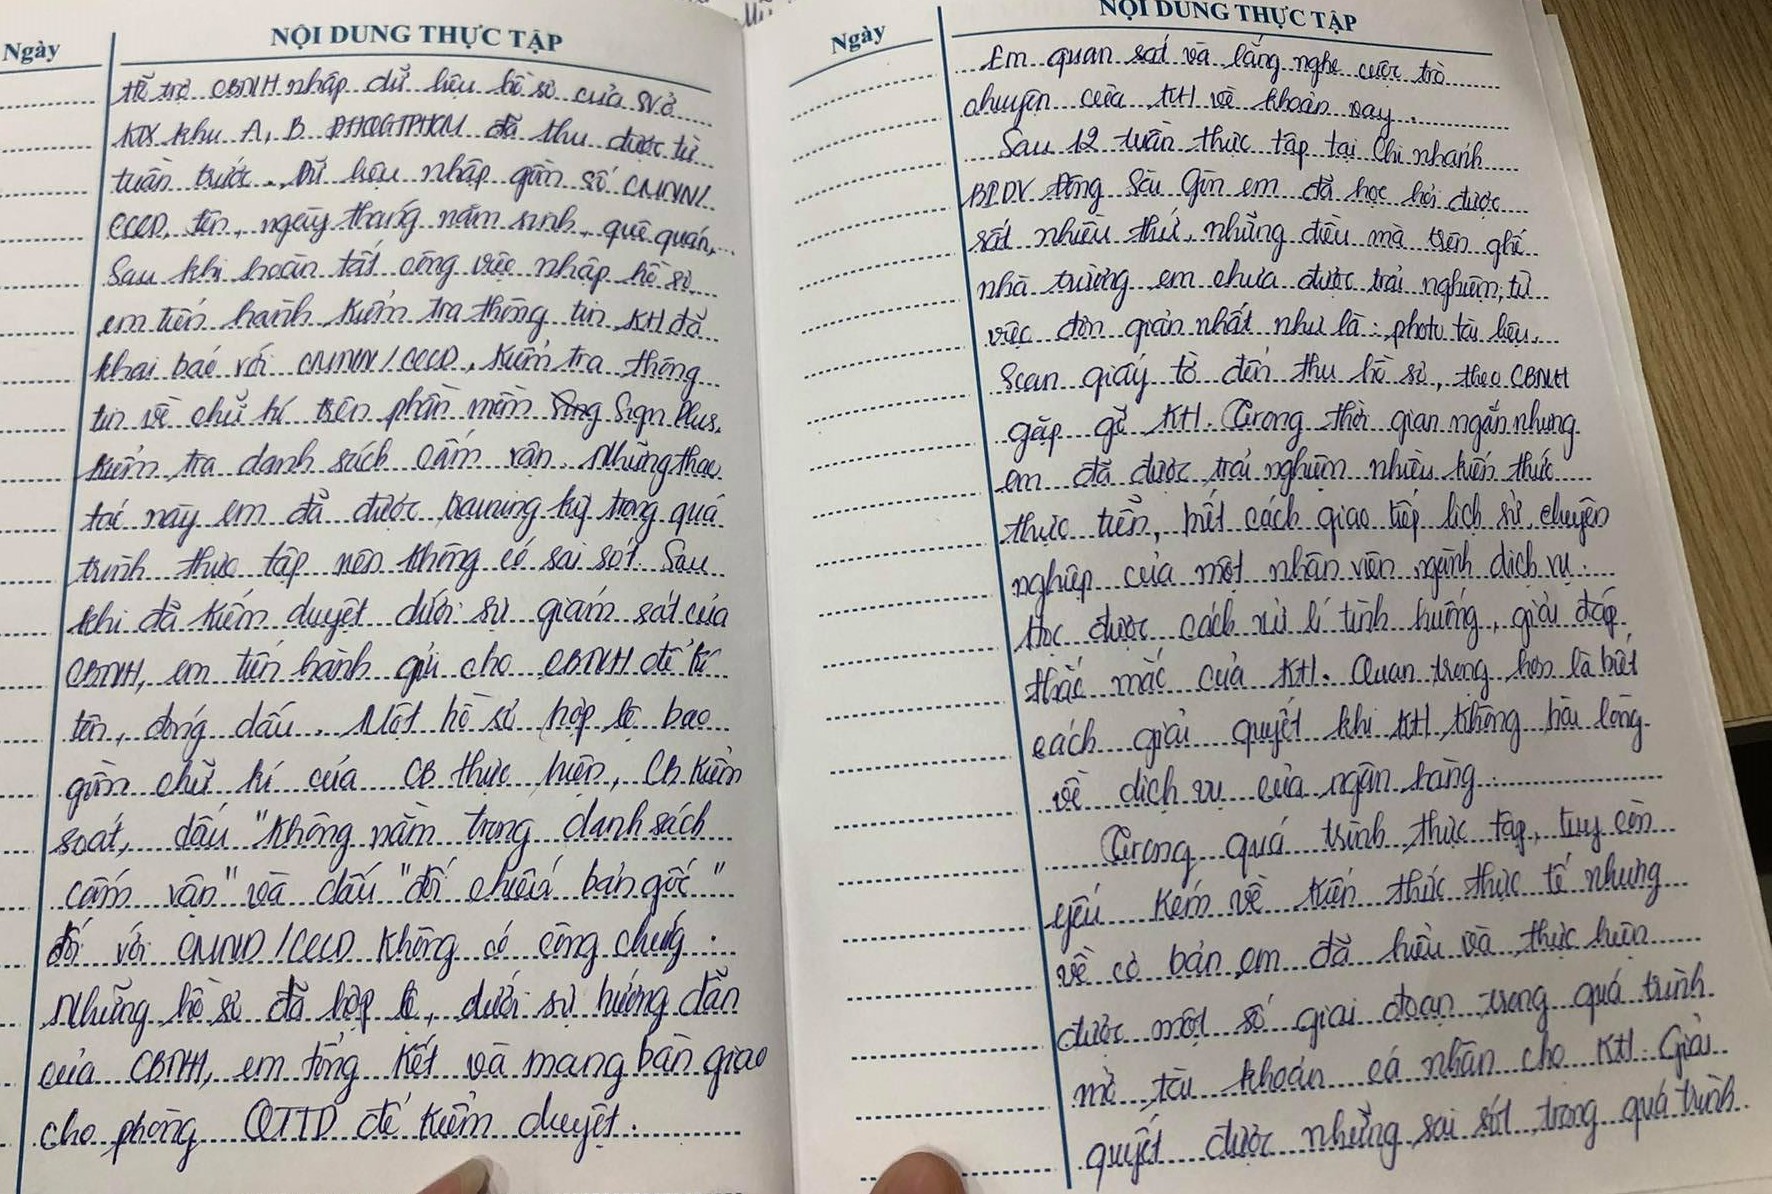 Ngày
NỘI DUNG THỰC TẬP
Hỗ trợ CBNH nhập dữ liệu hồ sơ của SV ở
KTX khu A, B ĐHQGTPHCM đã thu được từ
tuần trước. Dữ liệu nhập gồm số CMNN/
CCCD, tên, ngày tháng năm sinh, quê quán,...
Sau khi hoàn tất công việc nhập hồ sơ
em tiến hành kiểm tra thông tin KH đã
khai báo với CMNN/CCCD, kiểm tra thông
tin về chữ kí trên phần mềm Sign Plus,
kiểm tra danh sách cấm vận. Những thao
tác này em đã được training kỹ trong quá
trình thực tập nên không có sai sót. Sau
khi đã kiểm duyệt dưới sự giám sát của
CBNH, em tiến hành gửi cho CBNH để kí
tên, đóng dấu. Một hồ sơ hợp lệ bao
gồm chữ kí của CB thực hiện, CB kiểm
soát, dấu "không nằm trong danh sách
cấm vận" và dấu "đối chiếu bản gốc"
đối với CMND/CCCD không có công chứng.
Những hồ sơ đã hợp lệ, dưới sự hướng dẫn
của CBNH, em tổng kết và mang bàn giao
cho phòng QTTD để kiểm duyệt.
Ngày
NỘI DUNG THỰC TẬP
Em quan sát và lắng nghe cuộc trò
chuyện của KH về khoản vay.
Sau 12 tuần thực tập tại Chi nhánh
BIDV Đông Sài Gòn em đã học hỏi được
rất nhiều thứ, những điều mà trên ghế
nhà trường em chưa được trải nghiệm, từ
việc đơn giản nhất như là: photo tài liệu,
Scan giấy tờ đến thu hồ sơ, theo CBNH
gặp gỡ KH. Trong thời gian ngắn nhưng
em đã được trải nghiệm nhiều kiến thức
thực tiễn, biết cách giao tiếp lịch sự, chuyên
nghiệp của một nhân viên ngành dịch vụ.
Học được cách xử lí tình huống, giải đáp
thắc mắc của KH. Quan trọng hơn là biết
cách giải quyết khi KH không hài lòng
về dịch vụ của ngân hàng.
Trong quá trình thực tập, tuy còn
yếu kém về kiến thức thực tế nhưng
về cơ bản em đã hiểu và thực hiện
được một số giai đoạn trong quá trình
mở tài khoản cá nhân cho KH. Giải
quyết được những sai sót trong quá trình